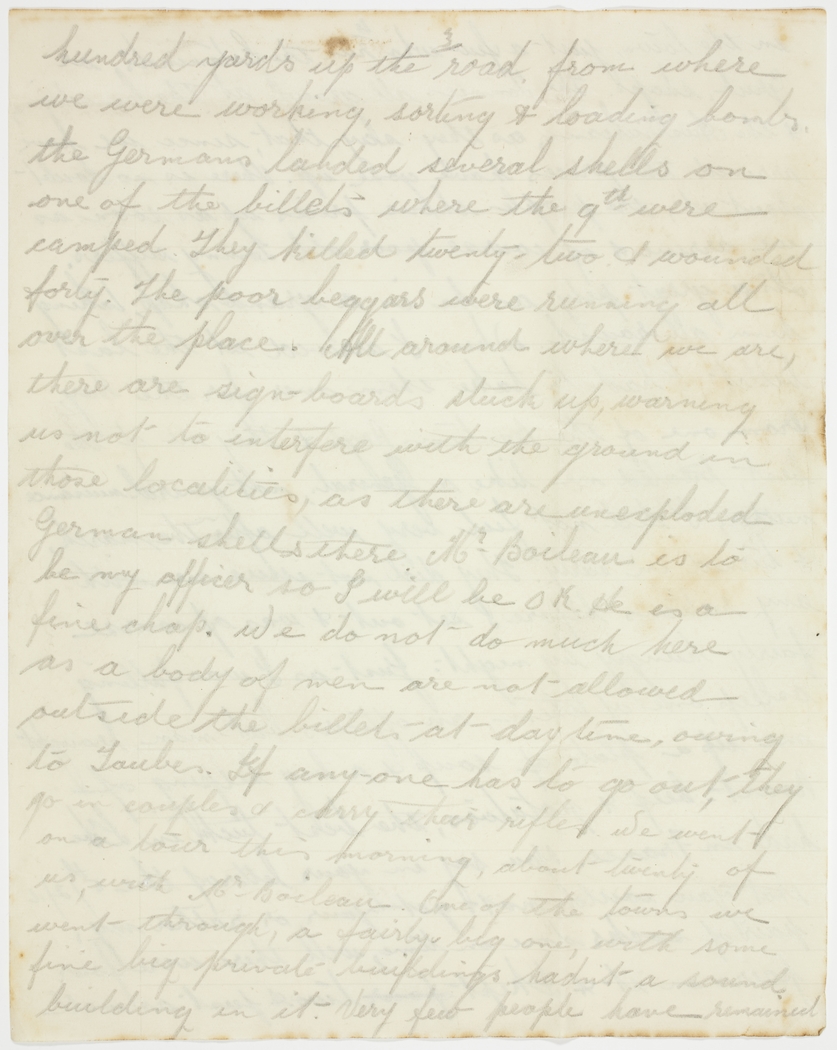 3
hundred yards up the road, from where
we were working, sorting & loading bombs,
the Germans landed several shells on
one of the billets where the 9th were
camped. They killed twenty-two & wounded
forty. The poor beggars were running all
over the place. All around where we are,
there are sign-boards stuck up, warning
us not to interfere with the ground in
those localities, as there are unexploded
German shells there Mr Boileau is to
be my officer so I will be OK. He is a
fine chap. We do not do much here
as a body of men are not allowed
outside the billets at daytime, owing
to Taubes. If any-one has to go out, they
go in couples & carry their rifles We went
on a tour this morning, about twenty of
us, with Mr Boileau. One of the towns we
went through, a fairly big one, with some
fine big private buildings hadn't a sound
building in it. Very few people have remained